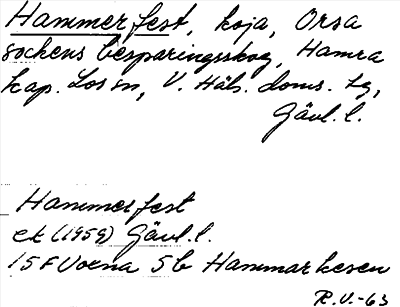 Hammerfest, koja, Orsa
sockens besparingsskog, Hamra
kap. Los sn, V. Häls. doms. tg,
Gävl. l.
Hammerfest
ek (1959) Gävl. l.
15 F Voxna 5b Hammarkesen
R.V.-63